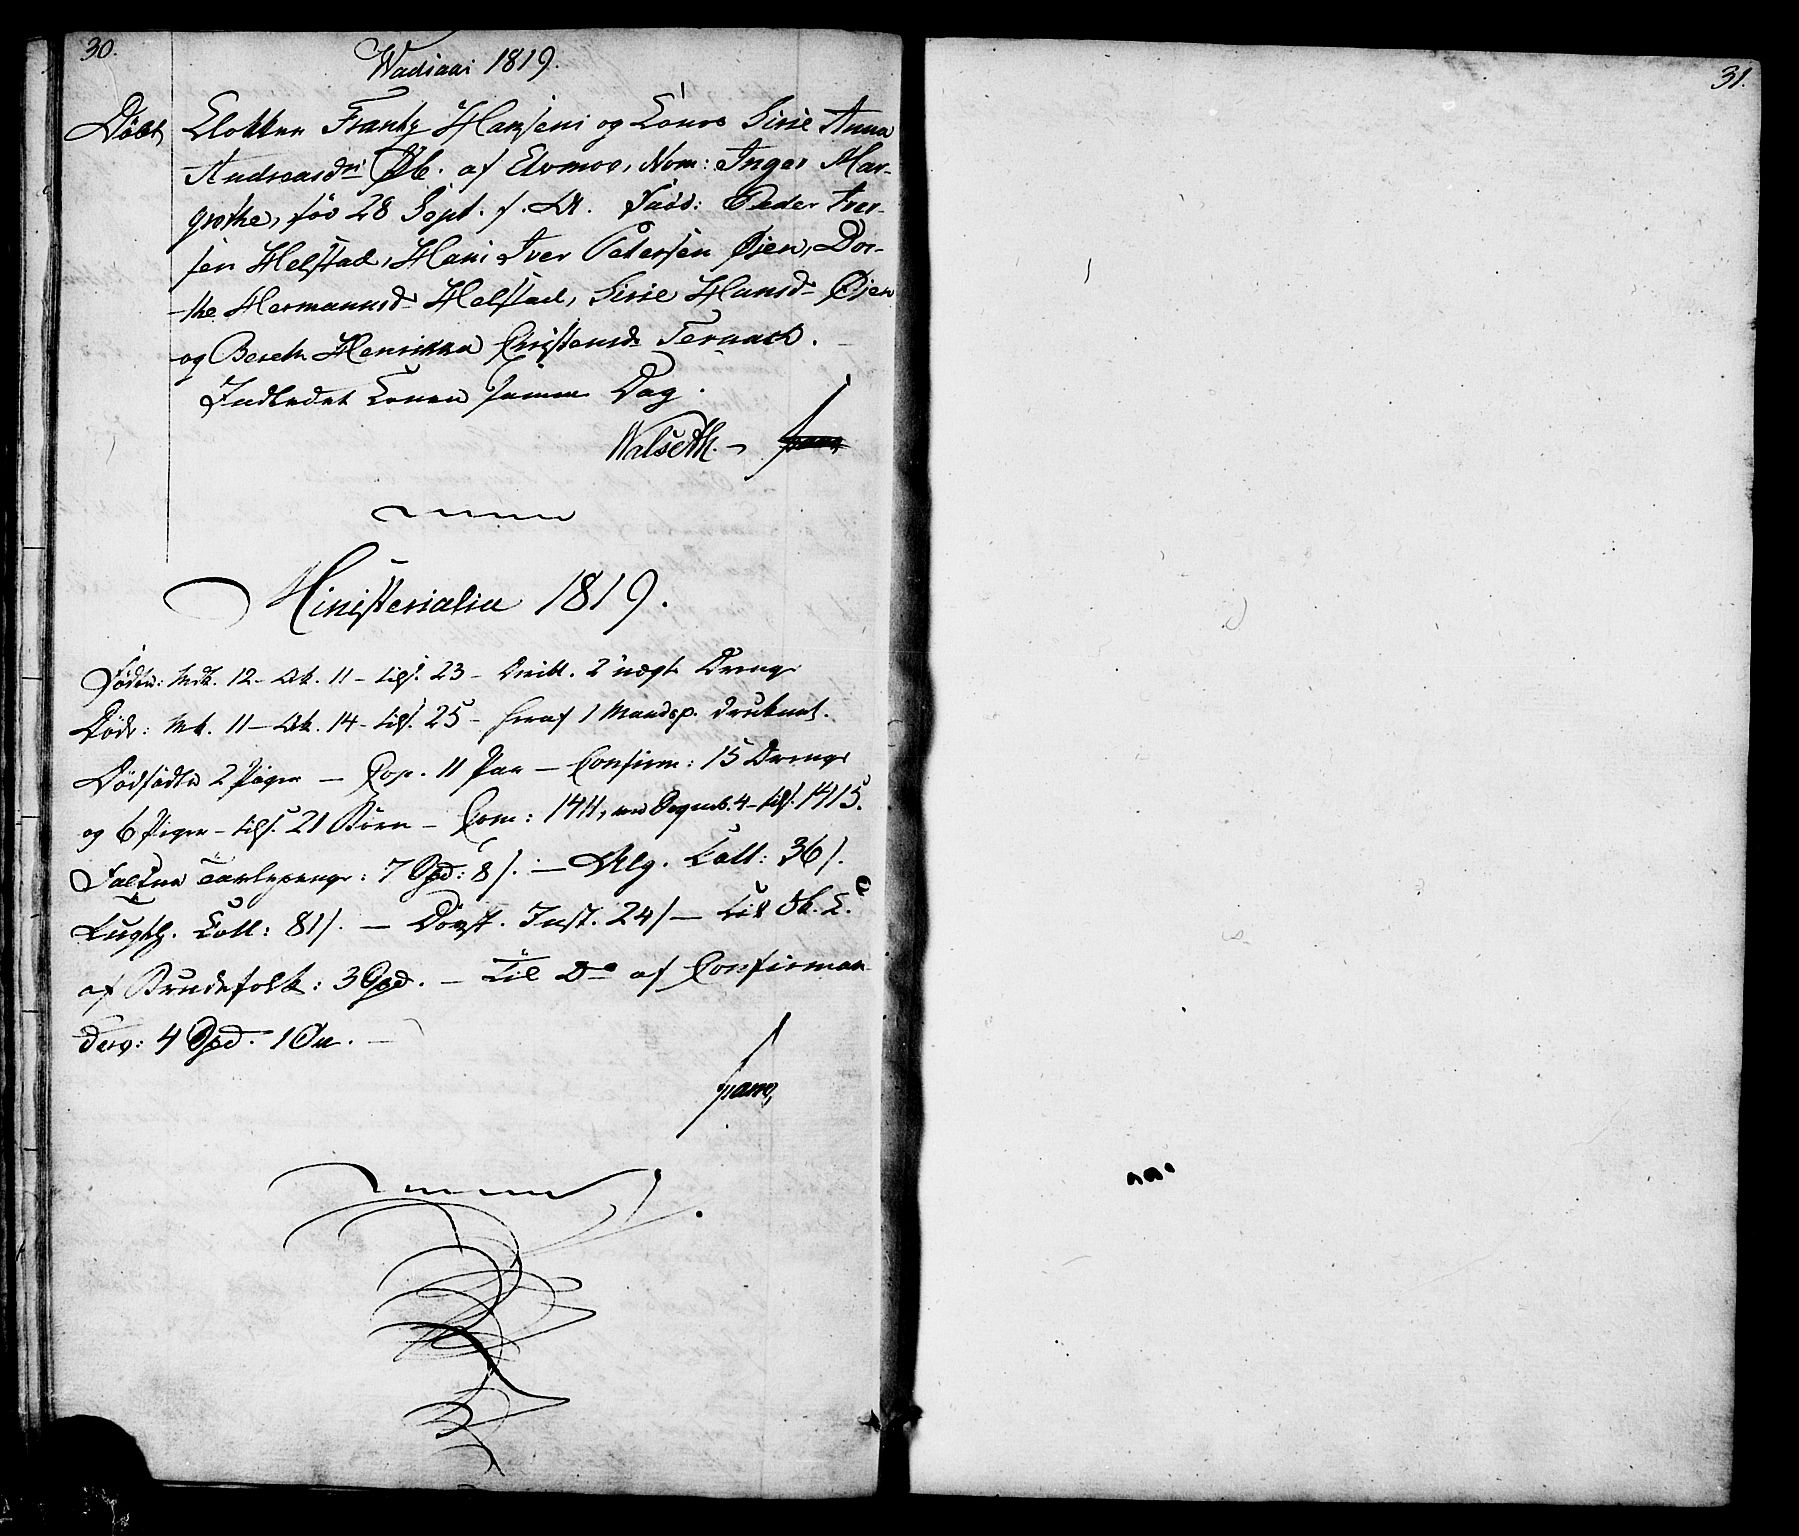 30.
Wadsaas 1819.
Døbt, Klokker Frantz Hansens og Kones Siric Anna
Andreasdr. Øb. af Elvmoe, Nom: Inger Mar-
grethe, fød 28 Sept. f. A. Fadd: Peder Iver-
sen Helstad, Hans Iver Petersen Øien, Dor-
the Hermansd. Helstad, Siric Hansd. Øien
og Bereth Henrikka Christensd.
Indledet Konen samme Dag.
Walseth.
Ministerialia 1819.
Fødte: Mk. 12 - Qk. 11 - tils. 23 - 2 uægte Drenge
Døde: Mk. 11 - Qk. 14 - tils. 25 - heraf 1 Mandsp. druknet.
Dødfødte 2 Piger - Cop. 11 Par - Confirm: 15 Drenge
og 6 Piger - tils. 21 Børn - Com: 1411, 4 - tils. 1415.
Faldne Tavlepenge: 7 Spd: 8 s. - Alg. Coll: 36 s.
Tugth. Coll: 81 s. - Døvst. Inst. 24 s - Til Sk. C.
af Brudefolk: 3 Spd. - Til Do af Confirman-
der: 4 Spd. 1 Ort. -
31.